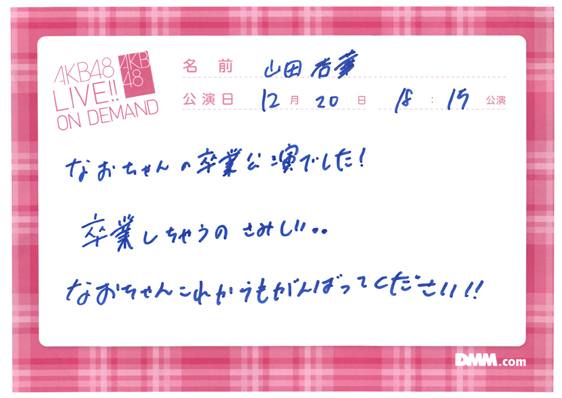 AKB48
LIVE!!
ON DEMAND
AKB
48
名前 山田杏華
公演日 12月20日 18:15公演
なおちゃんの卒業公演でした!
卒業しちゃうのさみしい..
なおちゃんこれからもがんばってください!!
DMM.com